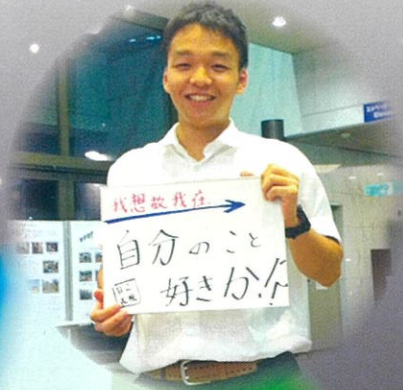 我想故我在
自分のこと
好きか!?